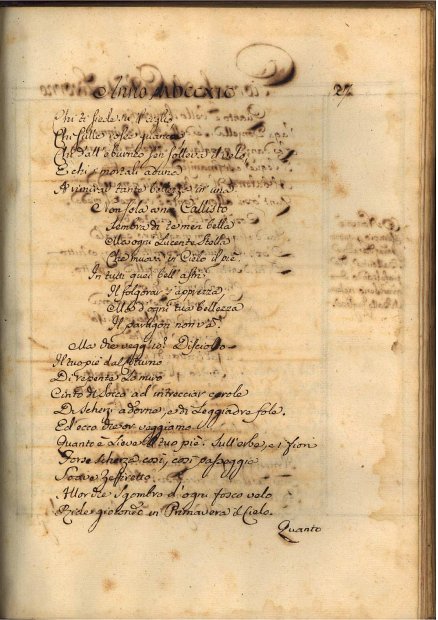 Anno MDCCXIC
27
Chi ti siede su'l ciglio
Chi sulle rosee guancie
Chi dall' eburneo sen solleva il velo
E chi i mortali aduna
A rimirar tante bellezze in una
Non sola una Callisto
Sembra di te men bella
Ma ogni Lucente Stella
Che muova in Cielo il piè
In tutti quei bell' astri
Il folgorar s'apprezza
Ma d'ogni tua bellezza
Il paragon non v'è.
Ma che veggio? Disciolto
Il tuo piè dal
Di repente Lo miro
Cinto di Socco ad intrecciar carole
Di Scherzi adorne, e di Leggiadre fole.
Ed ecco che or veggiamo
Quanto è Lieve il tuo piè. Sull' erbe, e i fiori
Forse scherza così, così passeggia
Soave Zeffiretto
Allor che Sgombro d'ogni fosco velo
Ride giocondo in Primavera il Cielo.
Quanto